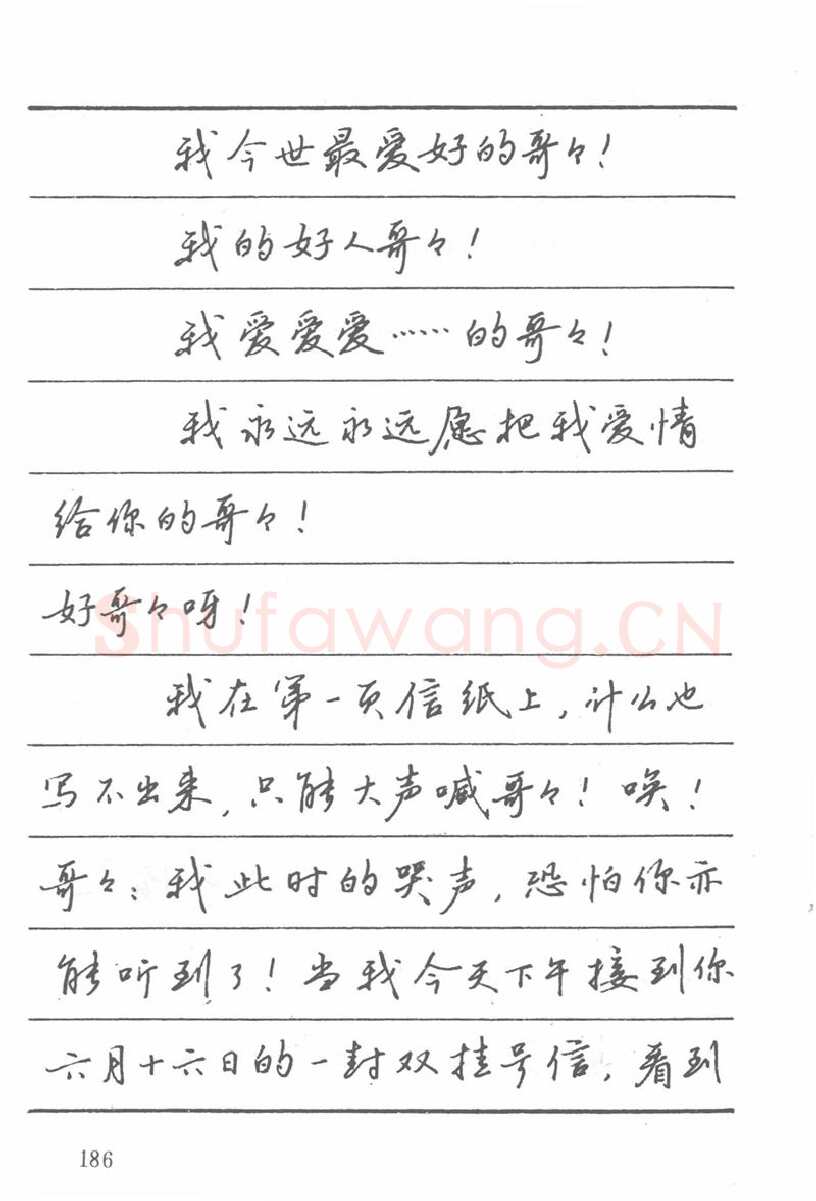 我今世最爱好的哥々！
我的好人哥々！
我爱爱爱……的哥々！
我永远永远愿把我爱情
给你的哥々！
好哥々呀！
shufawang.CN
我在第一页信纸上，什么也
写不出来，只能大声喊哥々！唤！
哥々：我此时的哭声，恐怕你亦
能听到了！当我今天下午接到你
六月十六日的一封双挂号信，看到
186